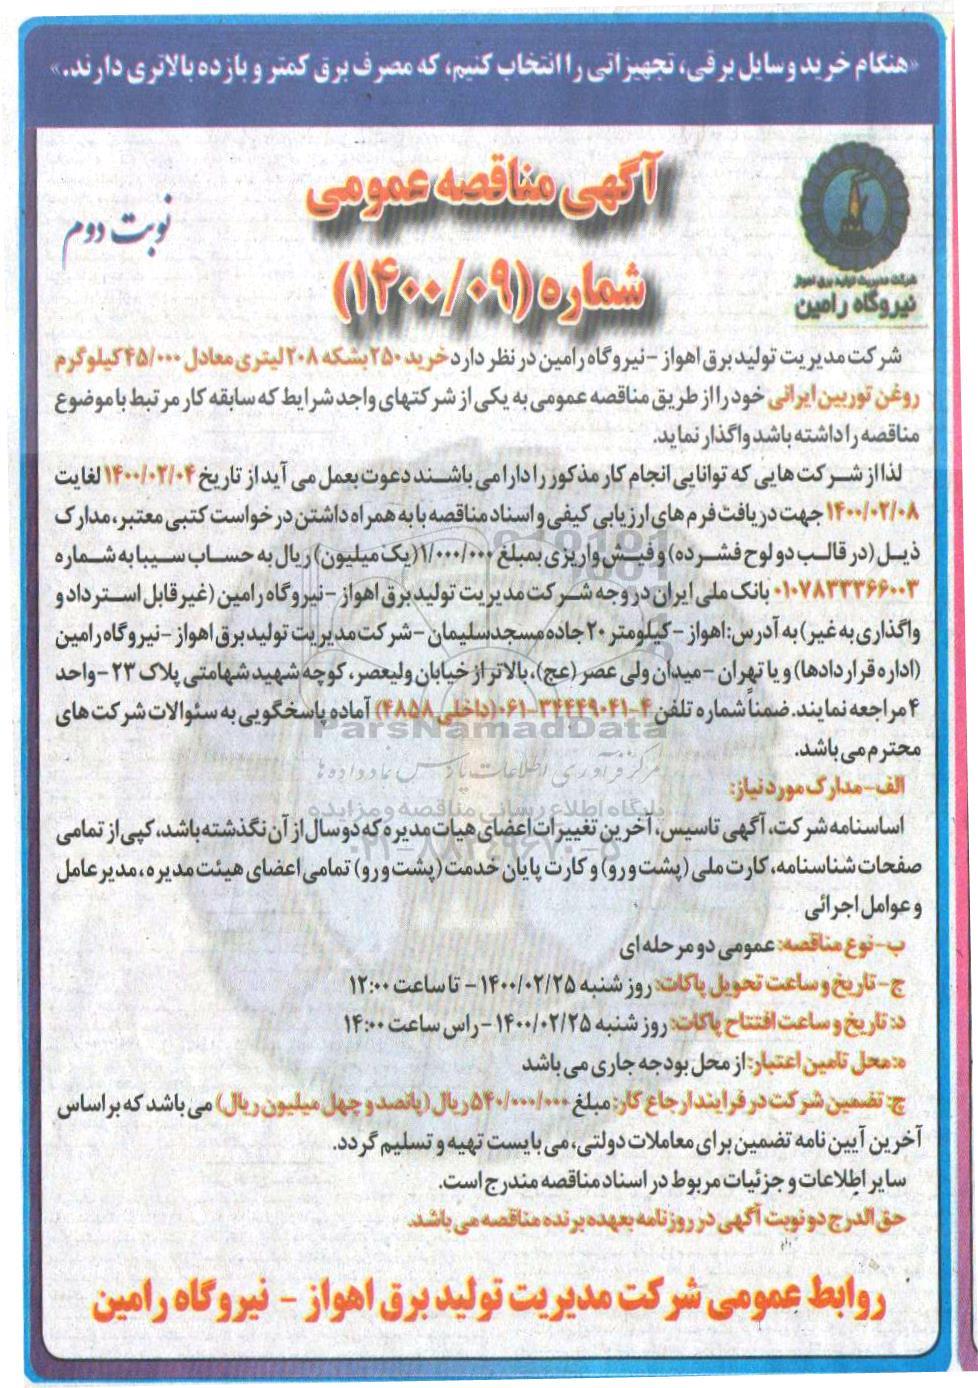 «هنگام خرید وسایل برقی، تجهیزاتی را انتخاب کنیم، که مصرف برق کمتر و بازده بالاتری دارند.»
آگهی مناقصه عمومی
شماره (۱۴۰۰/۰۹)
نوبت دوم
شرکت مدیریت تولید برق اهواز
نیروگاه رامین
شرکت مدیریت تولید برق اهواز - نیروگاه رامین در نظر دارد خرید ۲۵۰ بشکه ۲۰۸ لیتری معادل ۴۵/۰۰۰ کیلوگرم
روغن توربین ایرانی خود را از طریق مناقصه عمومی به یکی از شرکتهای واجد شرایط که سابقه کار مرتبط با موضوع
مناقصه را داشته باشد واگذار نماید.
لذا از شرکت هایی که توانایی انجام کار مذکور را دارا می باشند دعوت بعمل می آید از تاریخ ۱۴۰۰/۰۲/۰۴ لغایت
۱۴۰۰/۰۲/۰۸ جهت دریافت فرم های ارزیابی کیفی و اسناد مناقصه با به همراه داشتن درخواست کتبی معتبر، مدارک
ذیل (در قالب دو لوح فشرده) و فیش واریزی بمبلغ ۱/۰۰۰/۰۰۰ (یک میلیون) ریال به حساب سیبا به شماره
۰۱۰۷۸۳۳۳۶۶۰۰۳ بانک ملی ایران در وجه شرکت مدیریت تولید برق اهواز - نیروگاه رامین (غیر قابل استرداد و
واگذاری به غیر) به آدرس: اهواز - کیلومتر ۲۰ جاده مسجدسلیمان - شرکت مدیریت تولید برق اهواز - نیروگاه رامین
(اداره قراردادها) و یا تهران - میدان ولی عصر (عج)، بالاتر از خیابان ولیعصر، کوچه شهید شهامتی پلاک ۲۳ - واحد
۴ مراجعه نمایند. ضمناً شماره تلفن ۴-۳۴۴۴۹۰۴۱-۰۶۱ (داخلی ۴۸۵۸) آماده پاسخگویی به سئوالات شرکت های
محترم می باشد.
ParsNamadData
مرکز فرآوری اطلاعات پارس نماد داده ها
پایگاه اطلاع رسانی مناقصه و مزایده
۰۲۱-۸۸۳۴۹۶۷۰-۵
الف- مدارک مورد نیاز:
اساسنامه شرکت، آگهی تاسیس، آخرین تغییرات اعضای هیات مدیره که دو سال از آن نگذشته باشد، کپی از تمامی
صفحات شناسنامه، کارت ملی (پشت و رو) و کارت پایان خدمت (پشت و رو) تمامی اعضای هیئت مدیره، مدیر عامل
و عوامل اجرائی
ب- نوع مناقصه: عمومی دو مرحله ای
ج- تاریخ و ساعت تحویل پاکات: روز شنبه ۱۴۰۰/۰۲/۲۵ - تا ساعت ۱۲:۰۰
د: تاریخ و ساعت افتتاح پاکات: روز شنبه ۱۴۰۰/۰۲/۲۵ - راس ساعت ۱۴:۰۰
ه: محل تامین اعتبار: از محل بودجه جاری می باشد
چ: تضمین شرکت در فرایند ارجاع کار: مبلغ ۵۴۰/۰۰۰/۰۰۰ ریال (پانصد و چهل میلیون ریال) می باشد که بر اساس
آخرین آیین نامه تضمین برای معاملات دولتی، می بایست تهیه و تسلیم گردد.
سایر اطلاعات و جزئیات مربوط در اسناد مناقصه مندرج است.
حق الدرج دو نوبت آگهی در روزنامه بعهده برنده مناقصه می باشد.
روابط عمومی شرکت مدیریت تولید برق اهواز - نیروگاه رامین